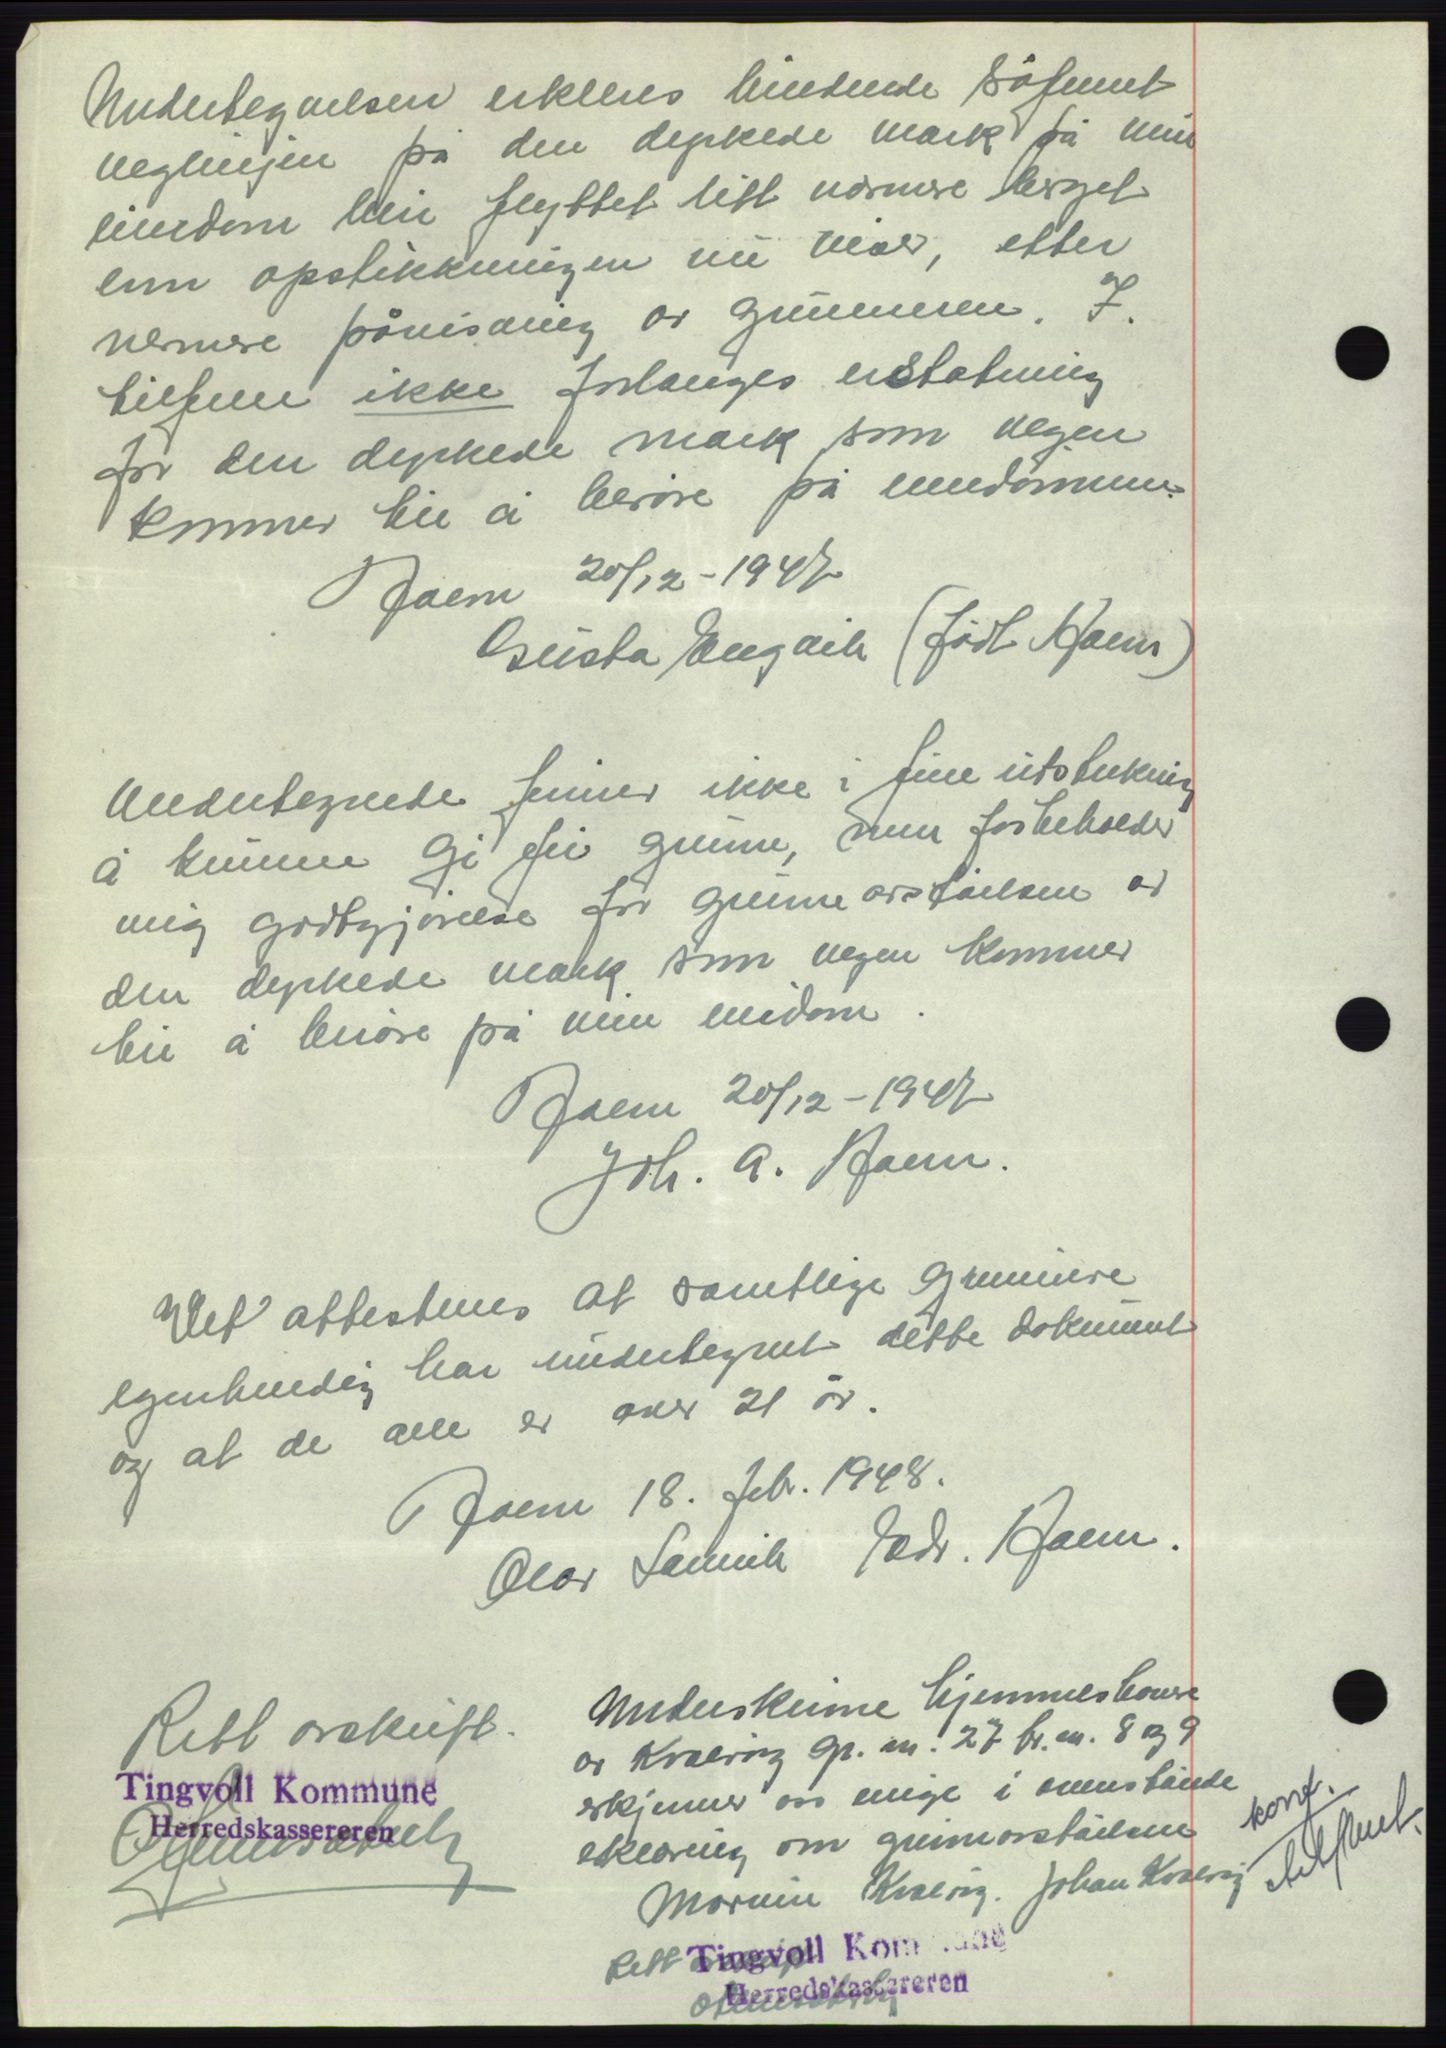 Undertegnelsen erklæres bindende såfremt
veglinjen på den dyrkede mark på min
eiendom blir flyttet litt nærmere berget
enn opstikkningen nu viser, etter
nærmere påvisning av grunneren. I
tilfelle ikke forlanges erstatning
for den dyrkede mark som vegen
kommer til å berøre på eiendommen.
Aasen 20/12-1947
Gusta Engvik (født Aasen)
Undertegnede finner ikke i
å kunne gi fri grunn, men forbeholder
mig godtgjørelse for grunnavståelsen av
den dyrkede mark som vegen kommer
til å berøre på min eiedom.
20/12-1947
Joh. A.
Det attesteres at samtlige grunneiere
egenhendig har undertegnet dette dokument
og at de alle er over 21 år.
18. febr. 1948.
Olav Sanvik Edv.
Rett avskrift.
Tingvoll Kommune
Herredskassereren
Underskrivne hjemmelshavere
av Kvalvåg gr. nr. 27 br. nr. 8 og 9
erkjenner oss enige i ovenstående
erklæring om grunnavståelsen
Marvin Kvalvåg. Johan Kvalvåg
konf.
Rett avskrift
Tingvoll Kommune
Herredskassereren